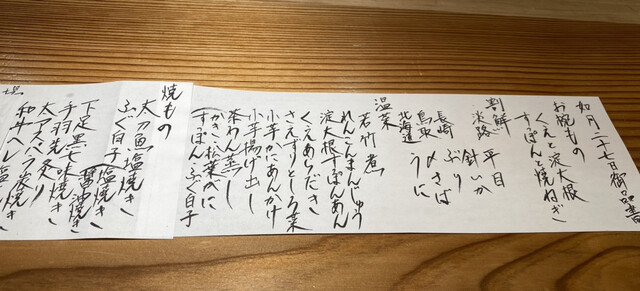 如月二十七日御品書
お椀もの
くえと淀大根
すっぽんと焼ねぎ
割鮮
淡路 平目
針いか
ぶり
長崎 〆さば
鳥取
北海道 うに
温菜
若竹煮
れんこんまんじゅう
淀大根すっぽんあん
くえあらだき
さえずりとしろ菜
小芋かにあんかけ
小芋揚げ出し
茶わん蒸し
かき、松葉かに
すっぽん、ふぐ白子
焼もの
太刀魚塩焼き
ふぐ白子(塩焼き
醤油焼き
下足黒七味焼き
手羽先炙り
太アスパラ炭焼き
和牛ヘレ塩